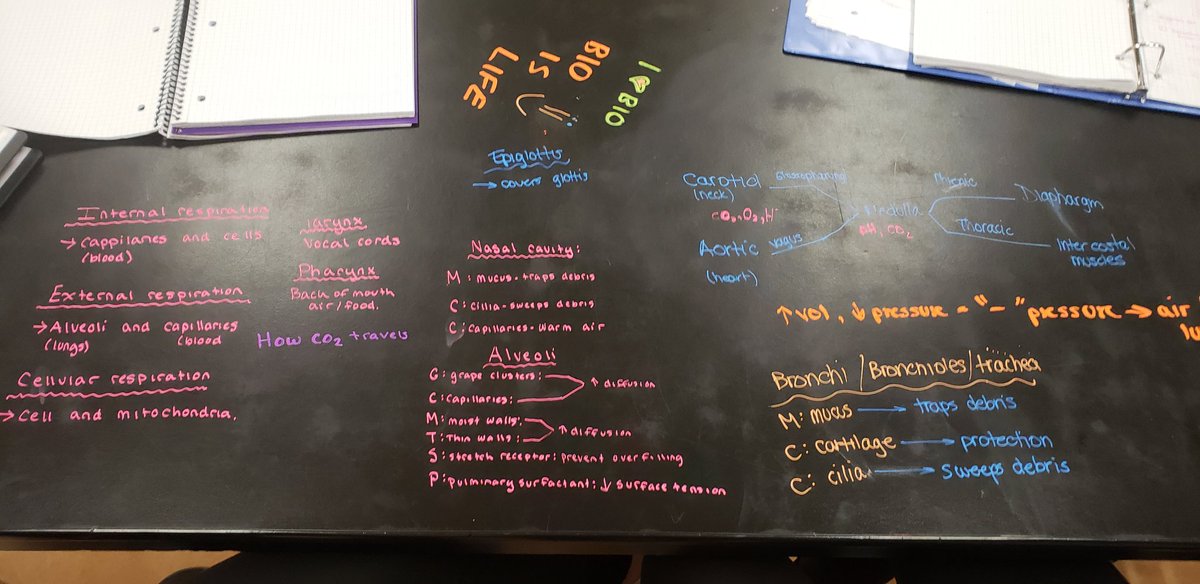 BIO
IS
LIFE
I ♥ BIO
Epiglottis
→ covers glottis
Internal respiration
→ cappilaries and cells
(blood)
External respiration
→ Alveoli and capillaries
(lungs) (blood
Cellular respiration
→ Cell and mitochondria.
larynx
Vocal cords
Pharynx
Back of mouth
air/food.
How CO2 travels
Nasal cavity:
M: mucus - traps debris
C: cillia - sweeps debris
C: capillaries - warm air
Alveoli
G: grape clusters:
C: capillaries:
↑ diffusion
M: moist walls:
T: Thin walls:
↑ diffusion
S: stretch receptor: prevent over filling
P: pulminary surfactant: ↓ surface tension
Carotid
(neck)
CO2, O2, H+
Aortic
(heart)
Vagus
Medulla
pH, CO2
Thoracic
Diaphargm
Intercostal
muscles
↑ vol, ↓ pressure = "-" pressure → air
Bronchi / Bronchioles / trachea
M: mucus → traps debris
C: cartilage → protection
C: cilia → sweeps debris